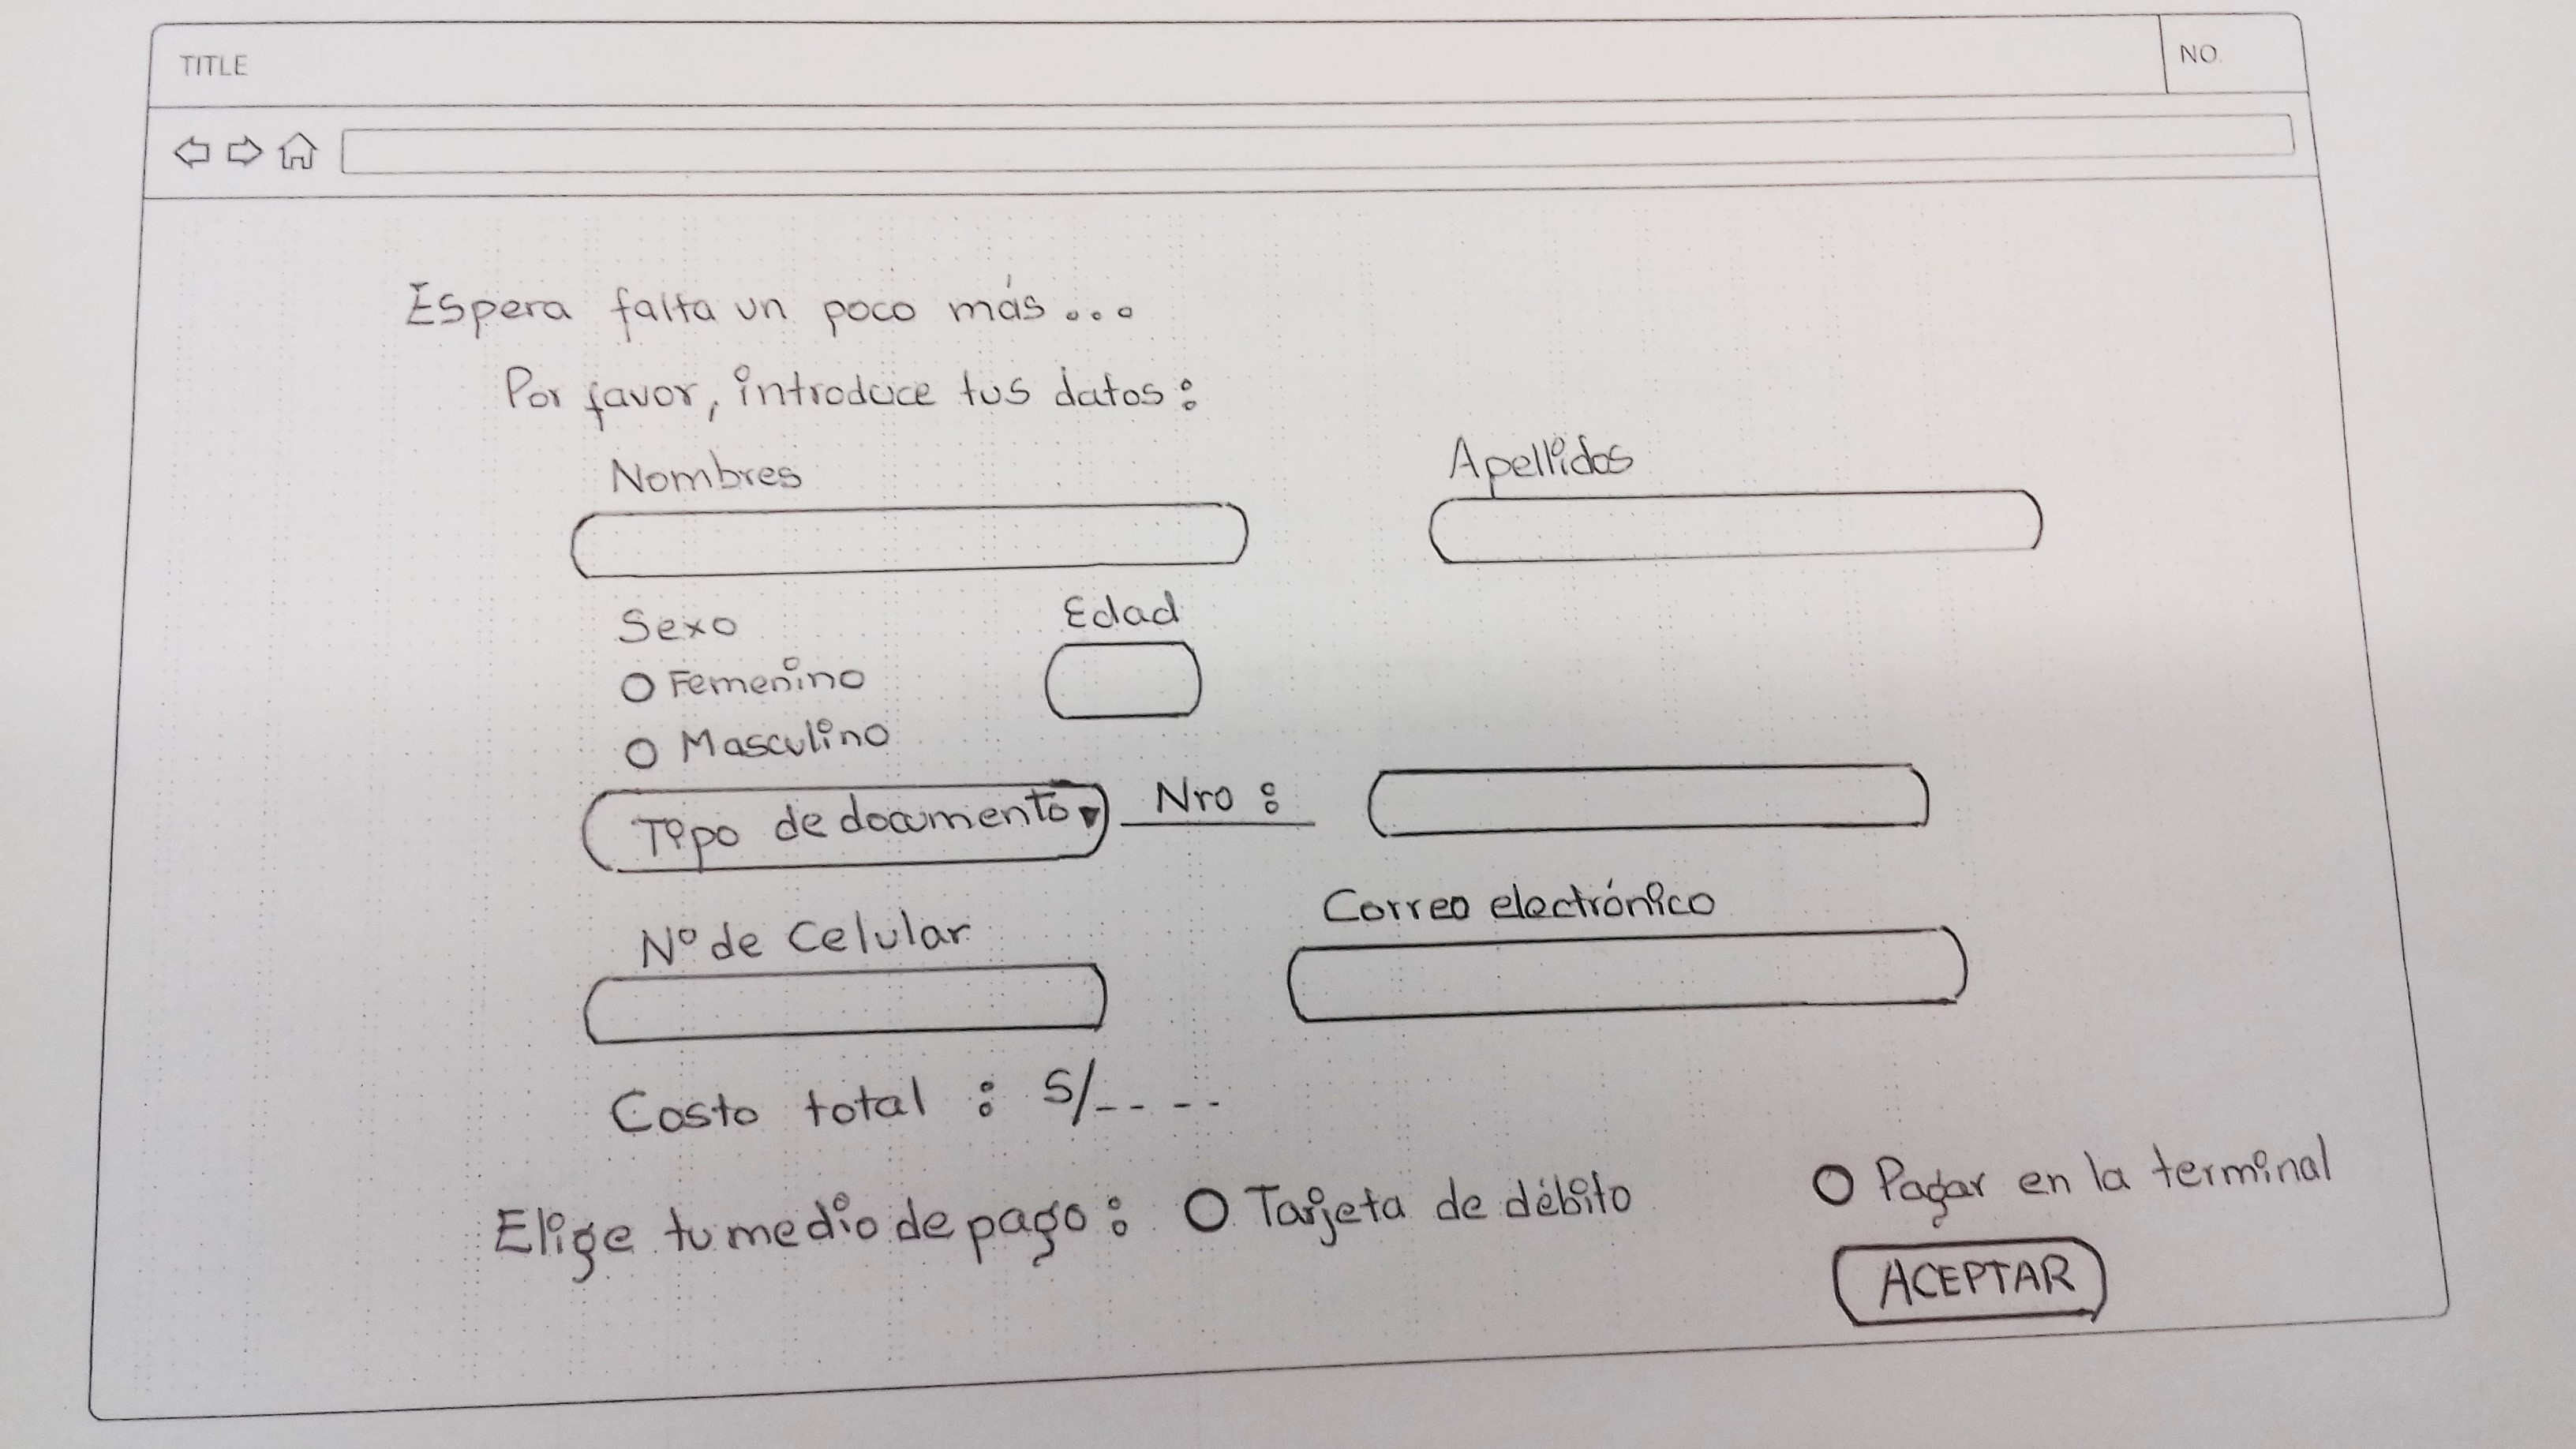 TITLE
NO.
Espera falta un poco más...
Por favor, introduce tus datos:
Nombres
Apellidos
Sexo
Edad
Femenino
Masculino
Tipo de documento
Nro :
N° de Celular
Correo electrónico
Costo total : S/_ _ _ _
Elige tu medio de pago : Tarjeta de débito
Pagar en la terminal
ACEPTAR